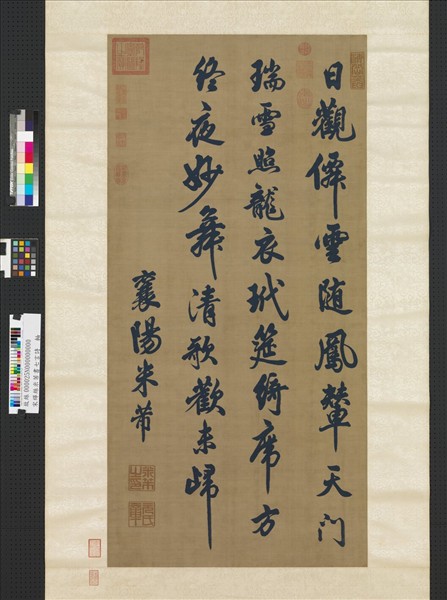 日觀僊雲随鳳輦天門
瑞雪照龍衣玳筵綺席方
終夜妙舞清歌歡未歸
襄陽米芾